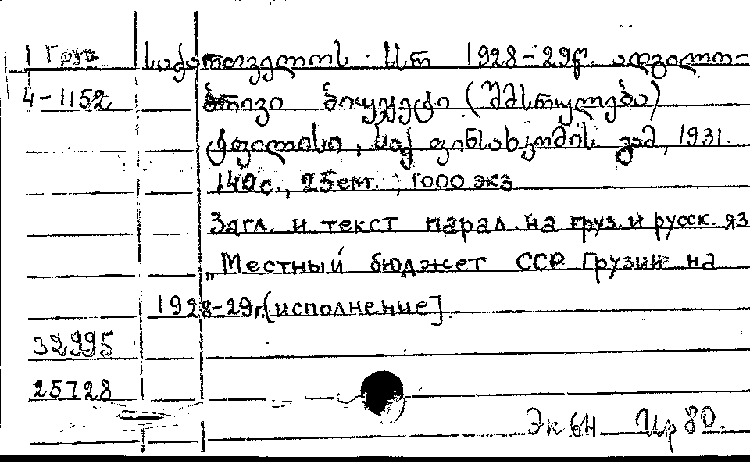 1 Груз საქართველოს სსრ 1928-29წ. ადგილო-
4-1152 ბრივი ბიუჯეტი (შესრულება)
ტფილისი, საქ ფინსახკომის გამ, 1931.
140 с., 25 см. ; 1000 экз
Загл. и текст парал. на груз. и русск. яз
„Местный бюджет ССР Грузии на
1928-29г. [исполнение].
32995
25728
Эк 6Н Ир 80.